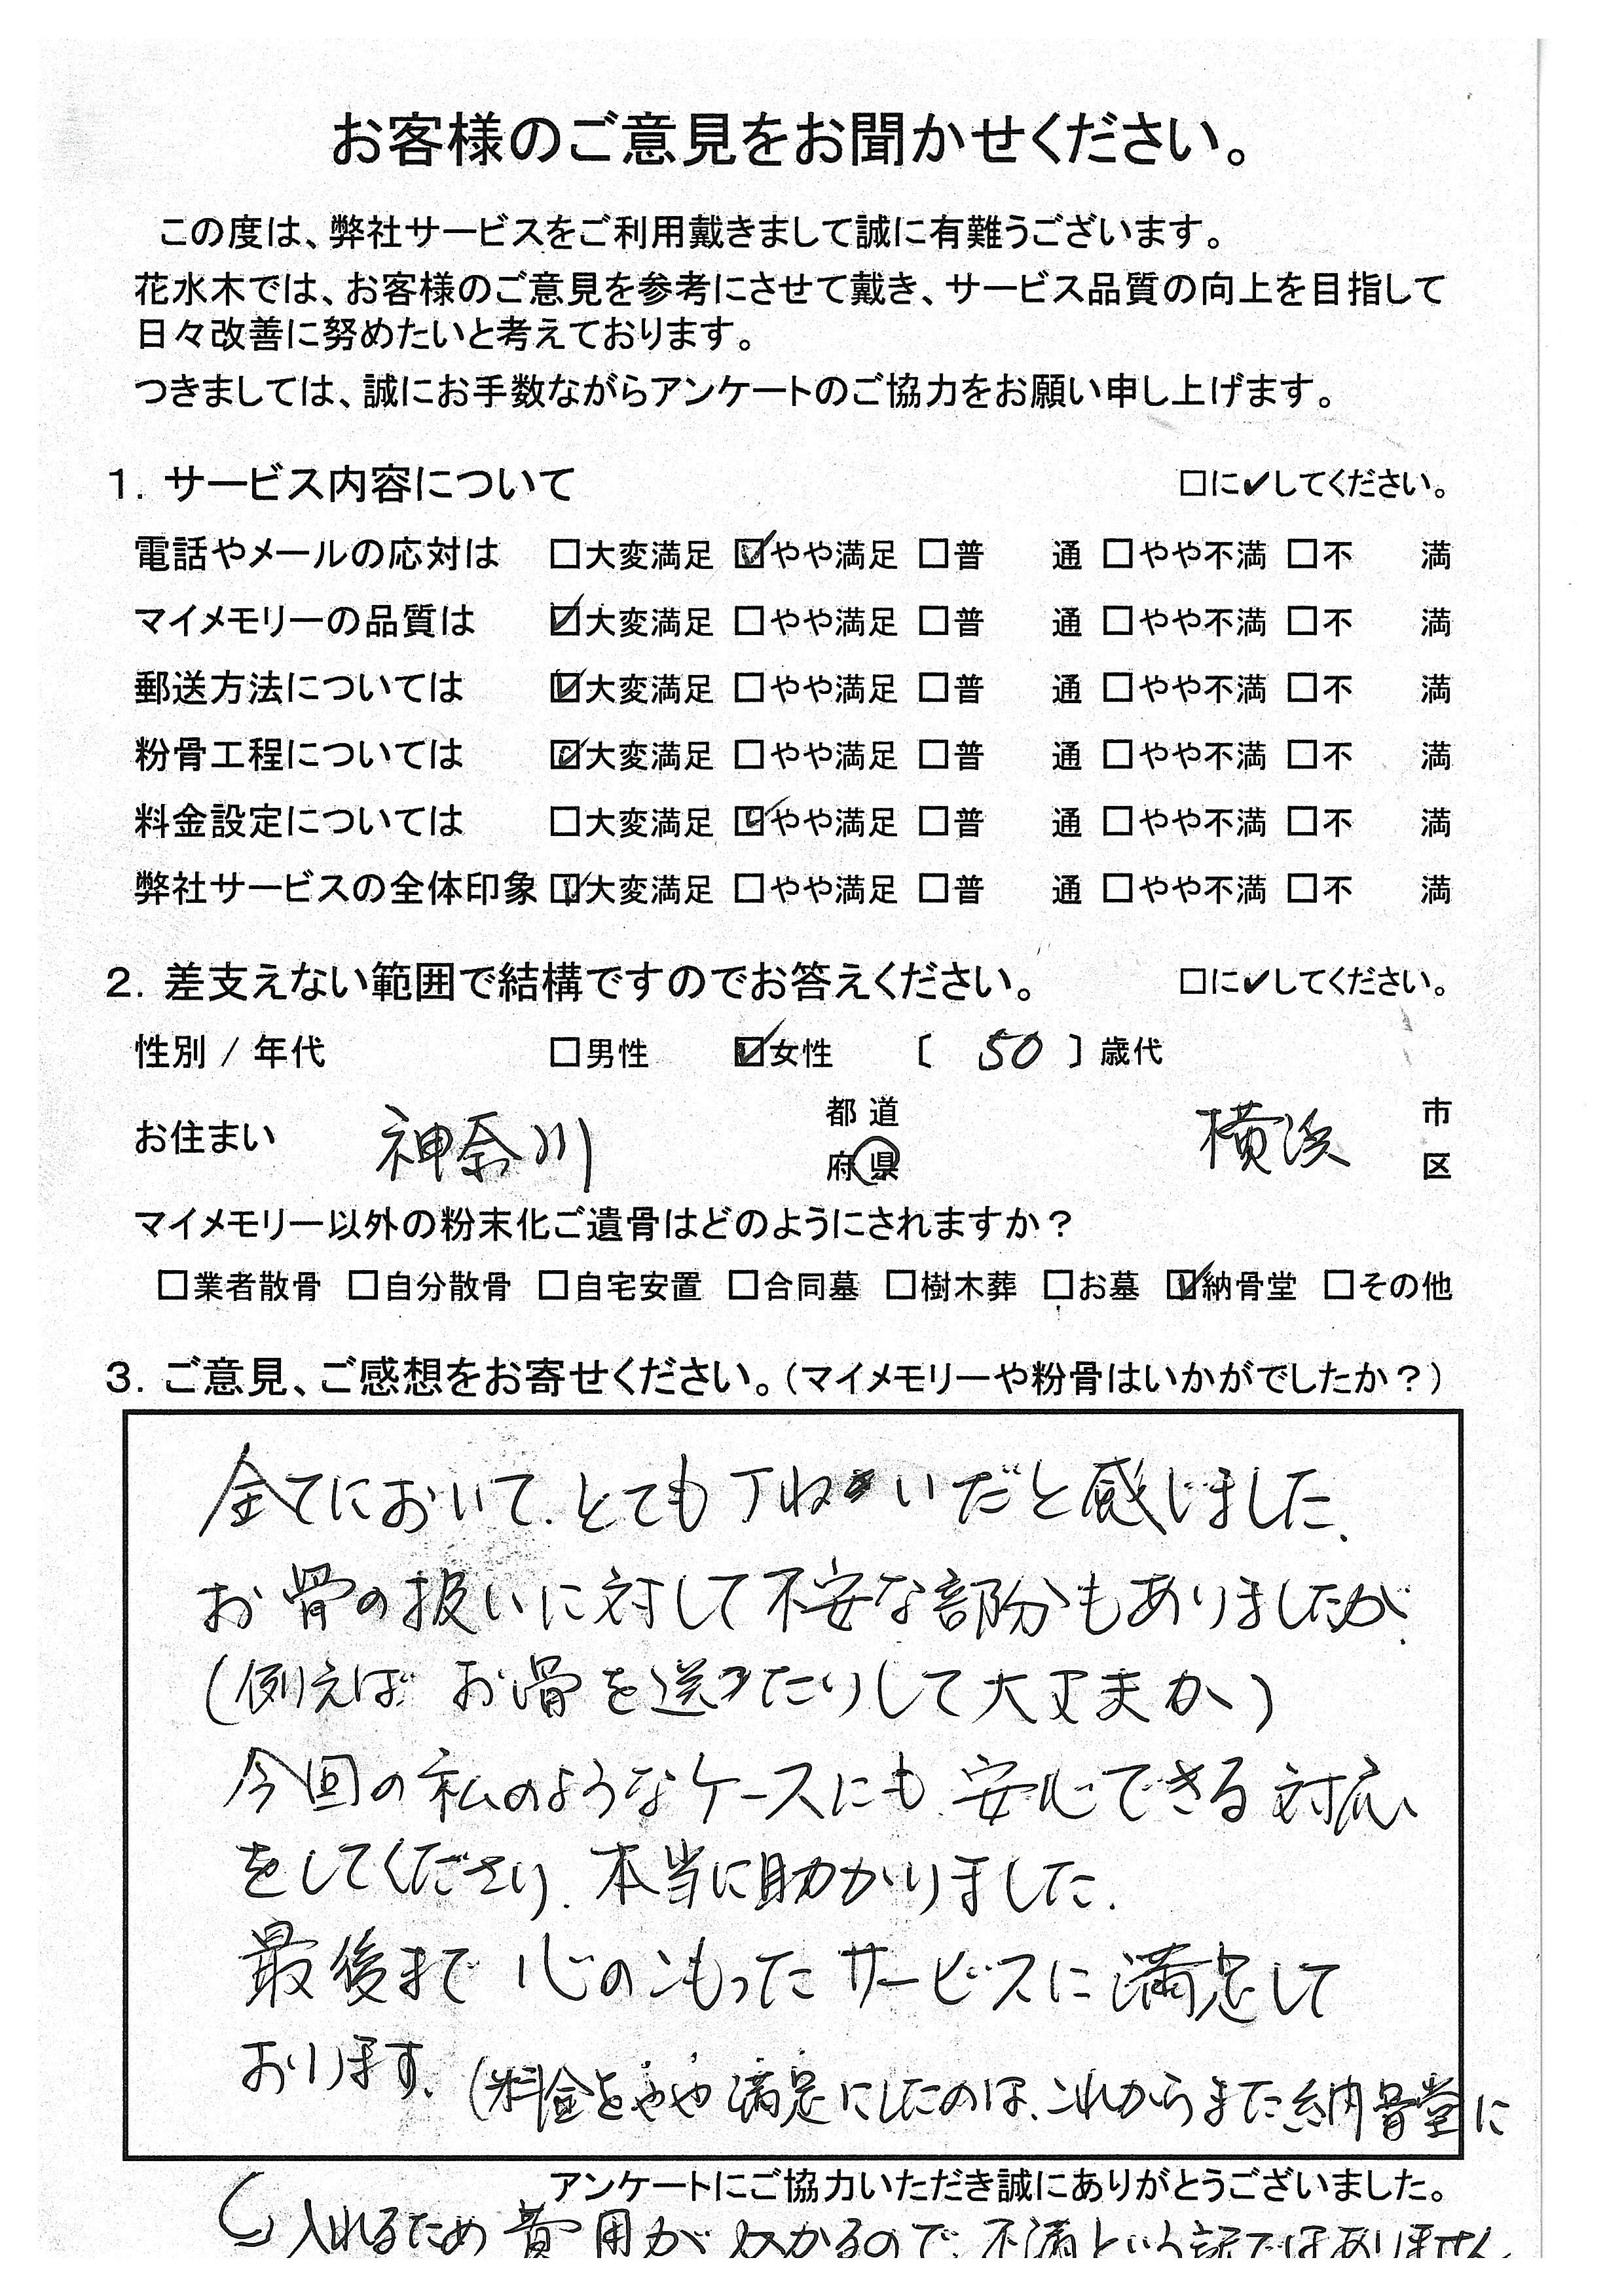 お客様のご意見をお聞かせください。
この度は、弊社サービスをご利用戴きまして誠に有難うございます。
花水木では、お客様のご意見を参考にさせて戴き、サービス品質の向上を目指して
日々改善に努めたいと考えております。
つきましては、誠にお手数ながらアンケートのご協力をお願い申し上げます。
1. サービス内容について □に✔してください。
電話やメールの応対は □大変満足 ☑やや満足 □普 通 □やや不満 □不 満
マイメモリーの品質は ☑大変満足 □やや満足 □普 通 □やや不満 □不 満
郵送方法については ☑大変満足 □やや満足 □普 通 □やや不満 □不 満
粉骨工程については ☑大変満足 □やや満足 □普 通 □やや不満 □不 満
料金設定については □大変満足 ☑やや満足 □普 通 □やや不満 □不 満
弊社サービスの全体印象 ☑大変満足 □やや満足 □普 通 □やや不満 □不 満
2. 差支えない範囲で結構ですのでお答えください。 □に✔してください。
性別 / 年代 □男性 ☑女性 〔 50 〕歳代
お住まい 神奈川 都道府県 横浜 市区
マイメモリー以外の粉末化ご遺骨はどのようにされますか？
□業者散骨 □自分散骨 □自宅安置 □合同墓 □樹木葬 □お墓 ☑納骨堂 □その他
3. ご意見、ご感想をお寄せください。（マイメモリーや粉骨はいかがでしたか？）
全てにおいて、とても丁ねいだと感じました。
お骨の扱いに対して不安な部分もありましたが、
（例えば お骨を送ったりして大丈夫か）
今回の私のようなケースにも、安心できる対応
をしてくださり、本当に助かりました。
最後まで 心のこもったサービスに満足して
おります。（料金をやや満足にしたのは、これからまた納骨堂に
アンケートにご協力いただき誠にありがとうございました。
入れるため 費用がかかるので、不満という訳ではありません